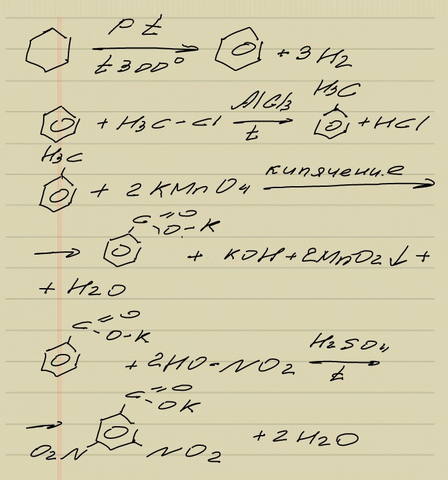 Pt
t 300°
+ 3H2
+ H3C-Cl
AlCl3
t
H3C
+ HCl
H3C
+ 2KMnO4
кипячение
C=O
O-K
+ KOH + 2MnO2↓ +
+ H2O
C=O
O-K
+ 2HO-NO2
H2SO4
t
C=O
OK
O2N
NO2
+ 2H2O